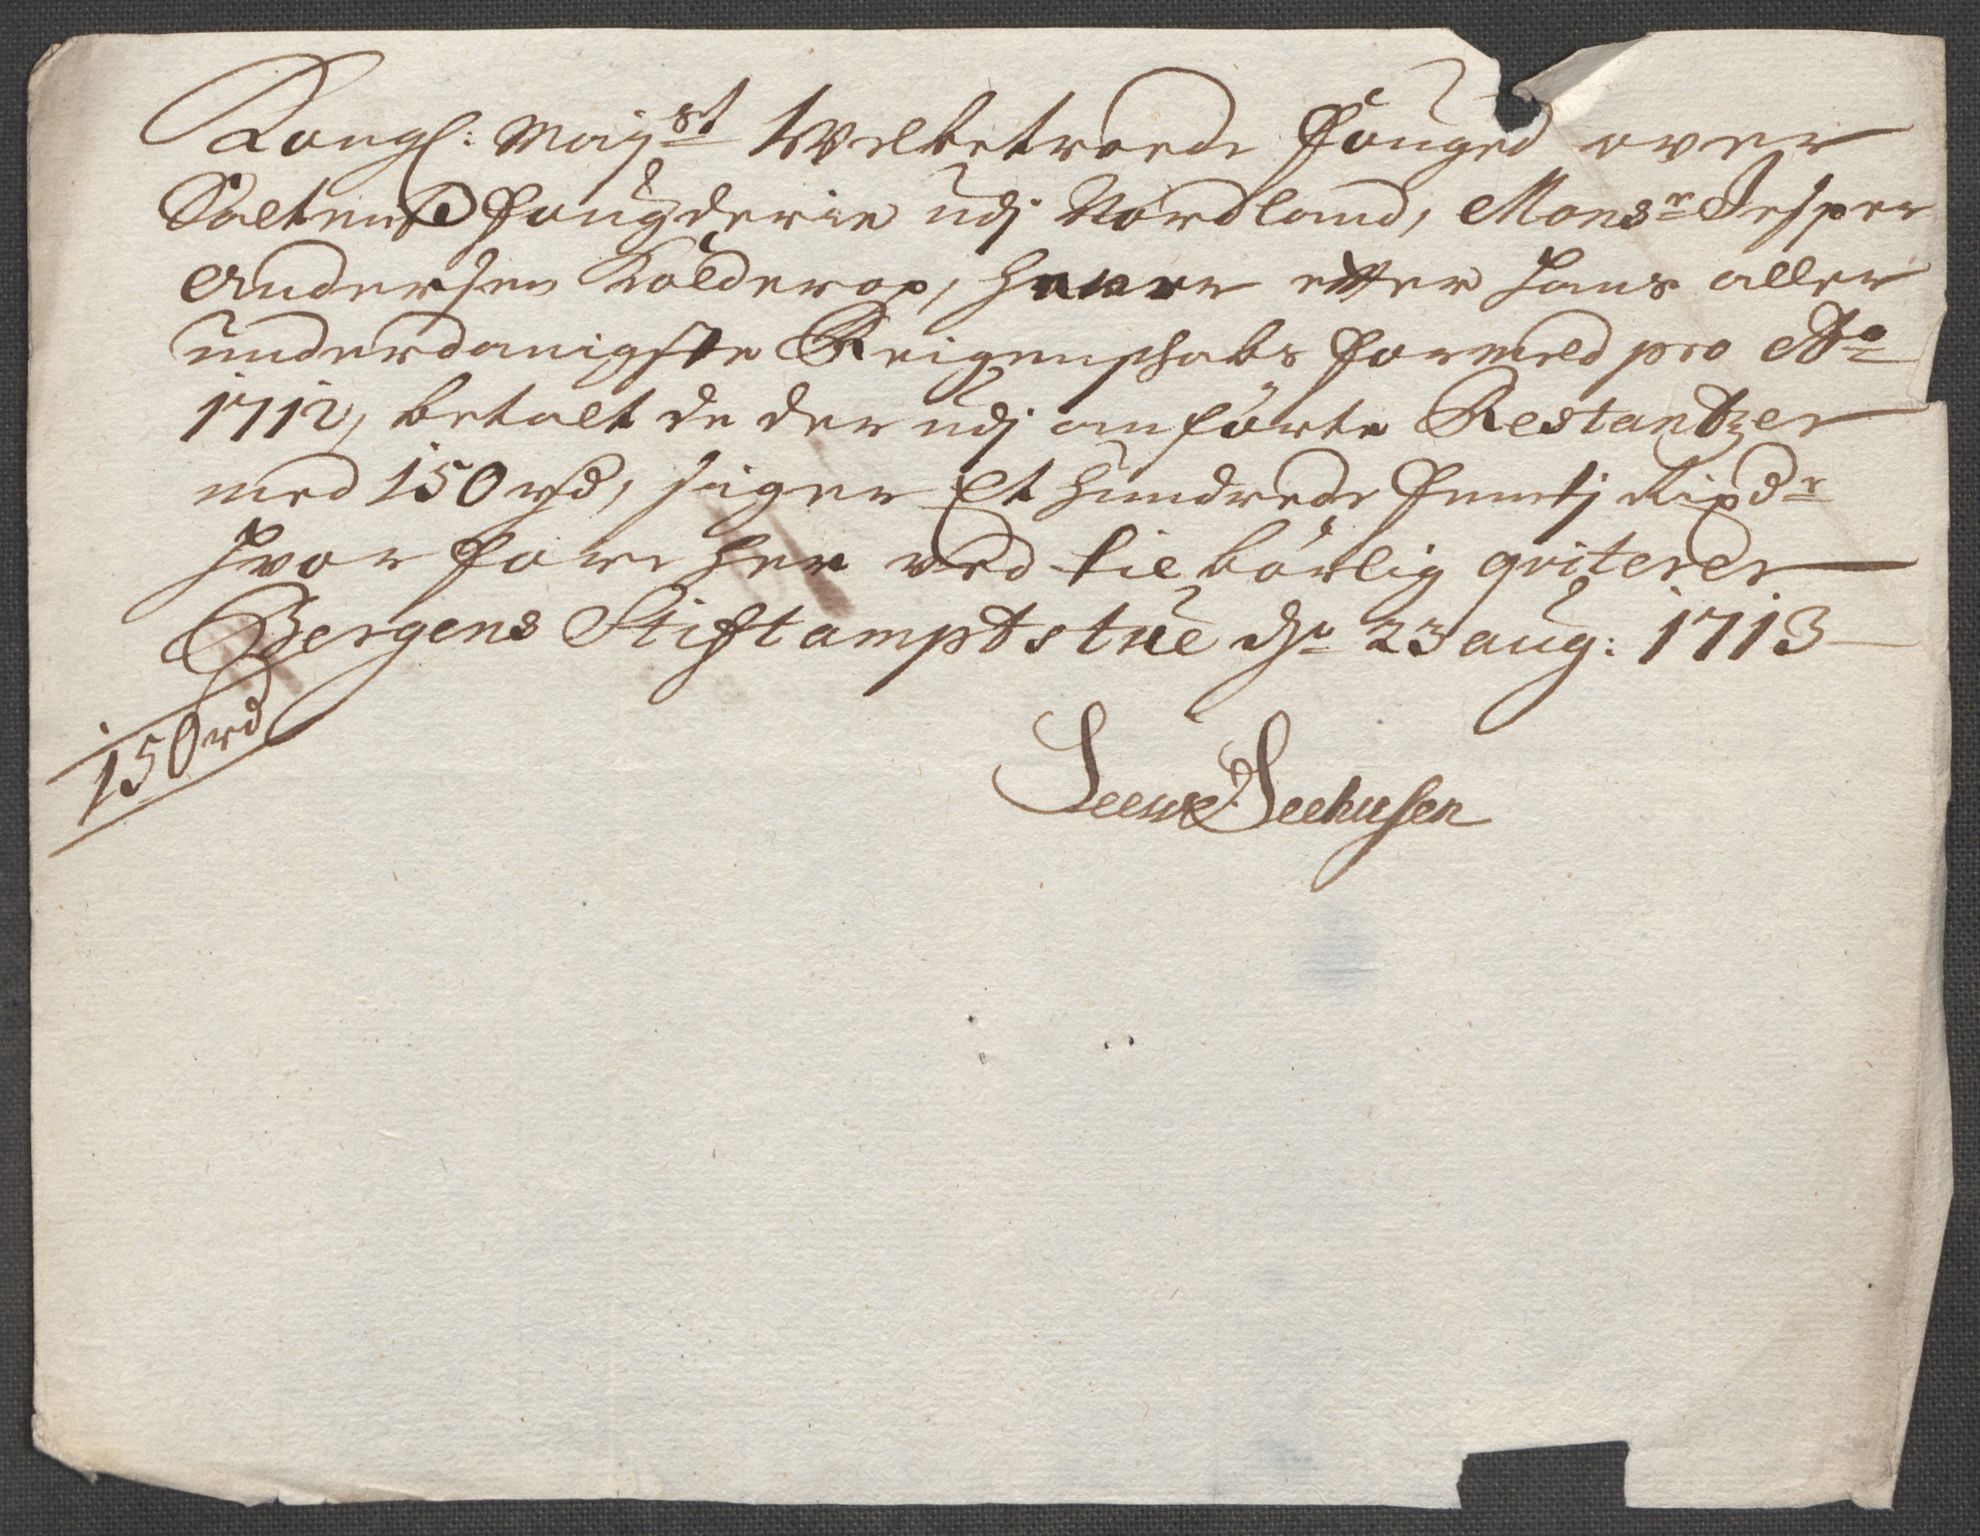 Kongl: Maÿst Welbetroede Fouged over
Saltens Fougderie udj Nordland, Monsr Jesper
Andersen Kolderop, hauer efter hans aller
underdanigste Reigenschabs formeld pro Ao
1712, betalt de der udj anförte Restantzer
med 150 rd, siger Et hundrede femtj Rixdr
hvor fore her ved tilbörlig qviterer
Bergens Stiftamptstue dn 23 aug: 1713
150 rd
Seehusen